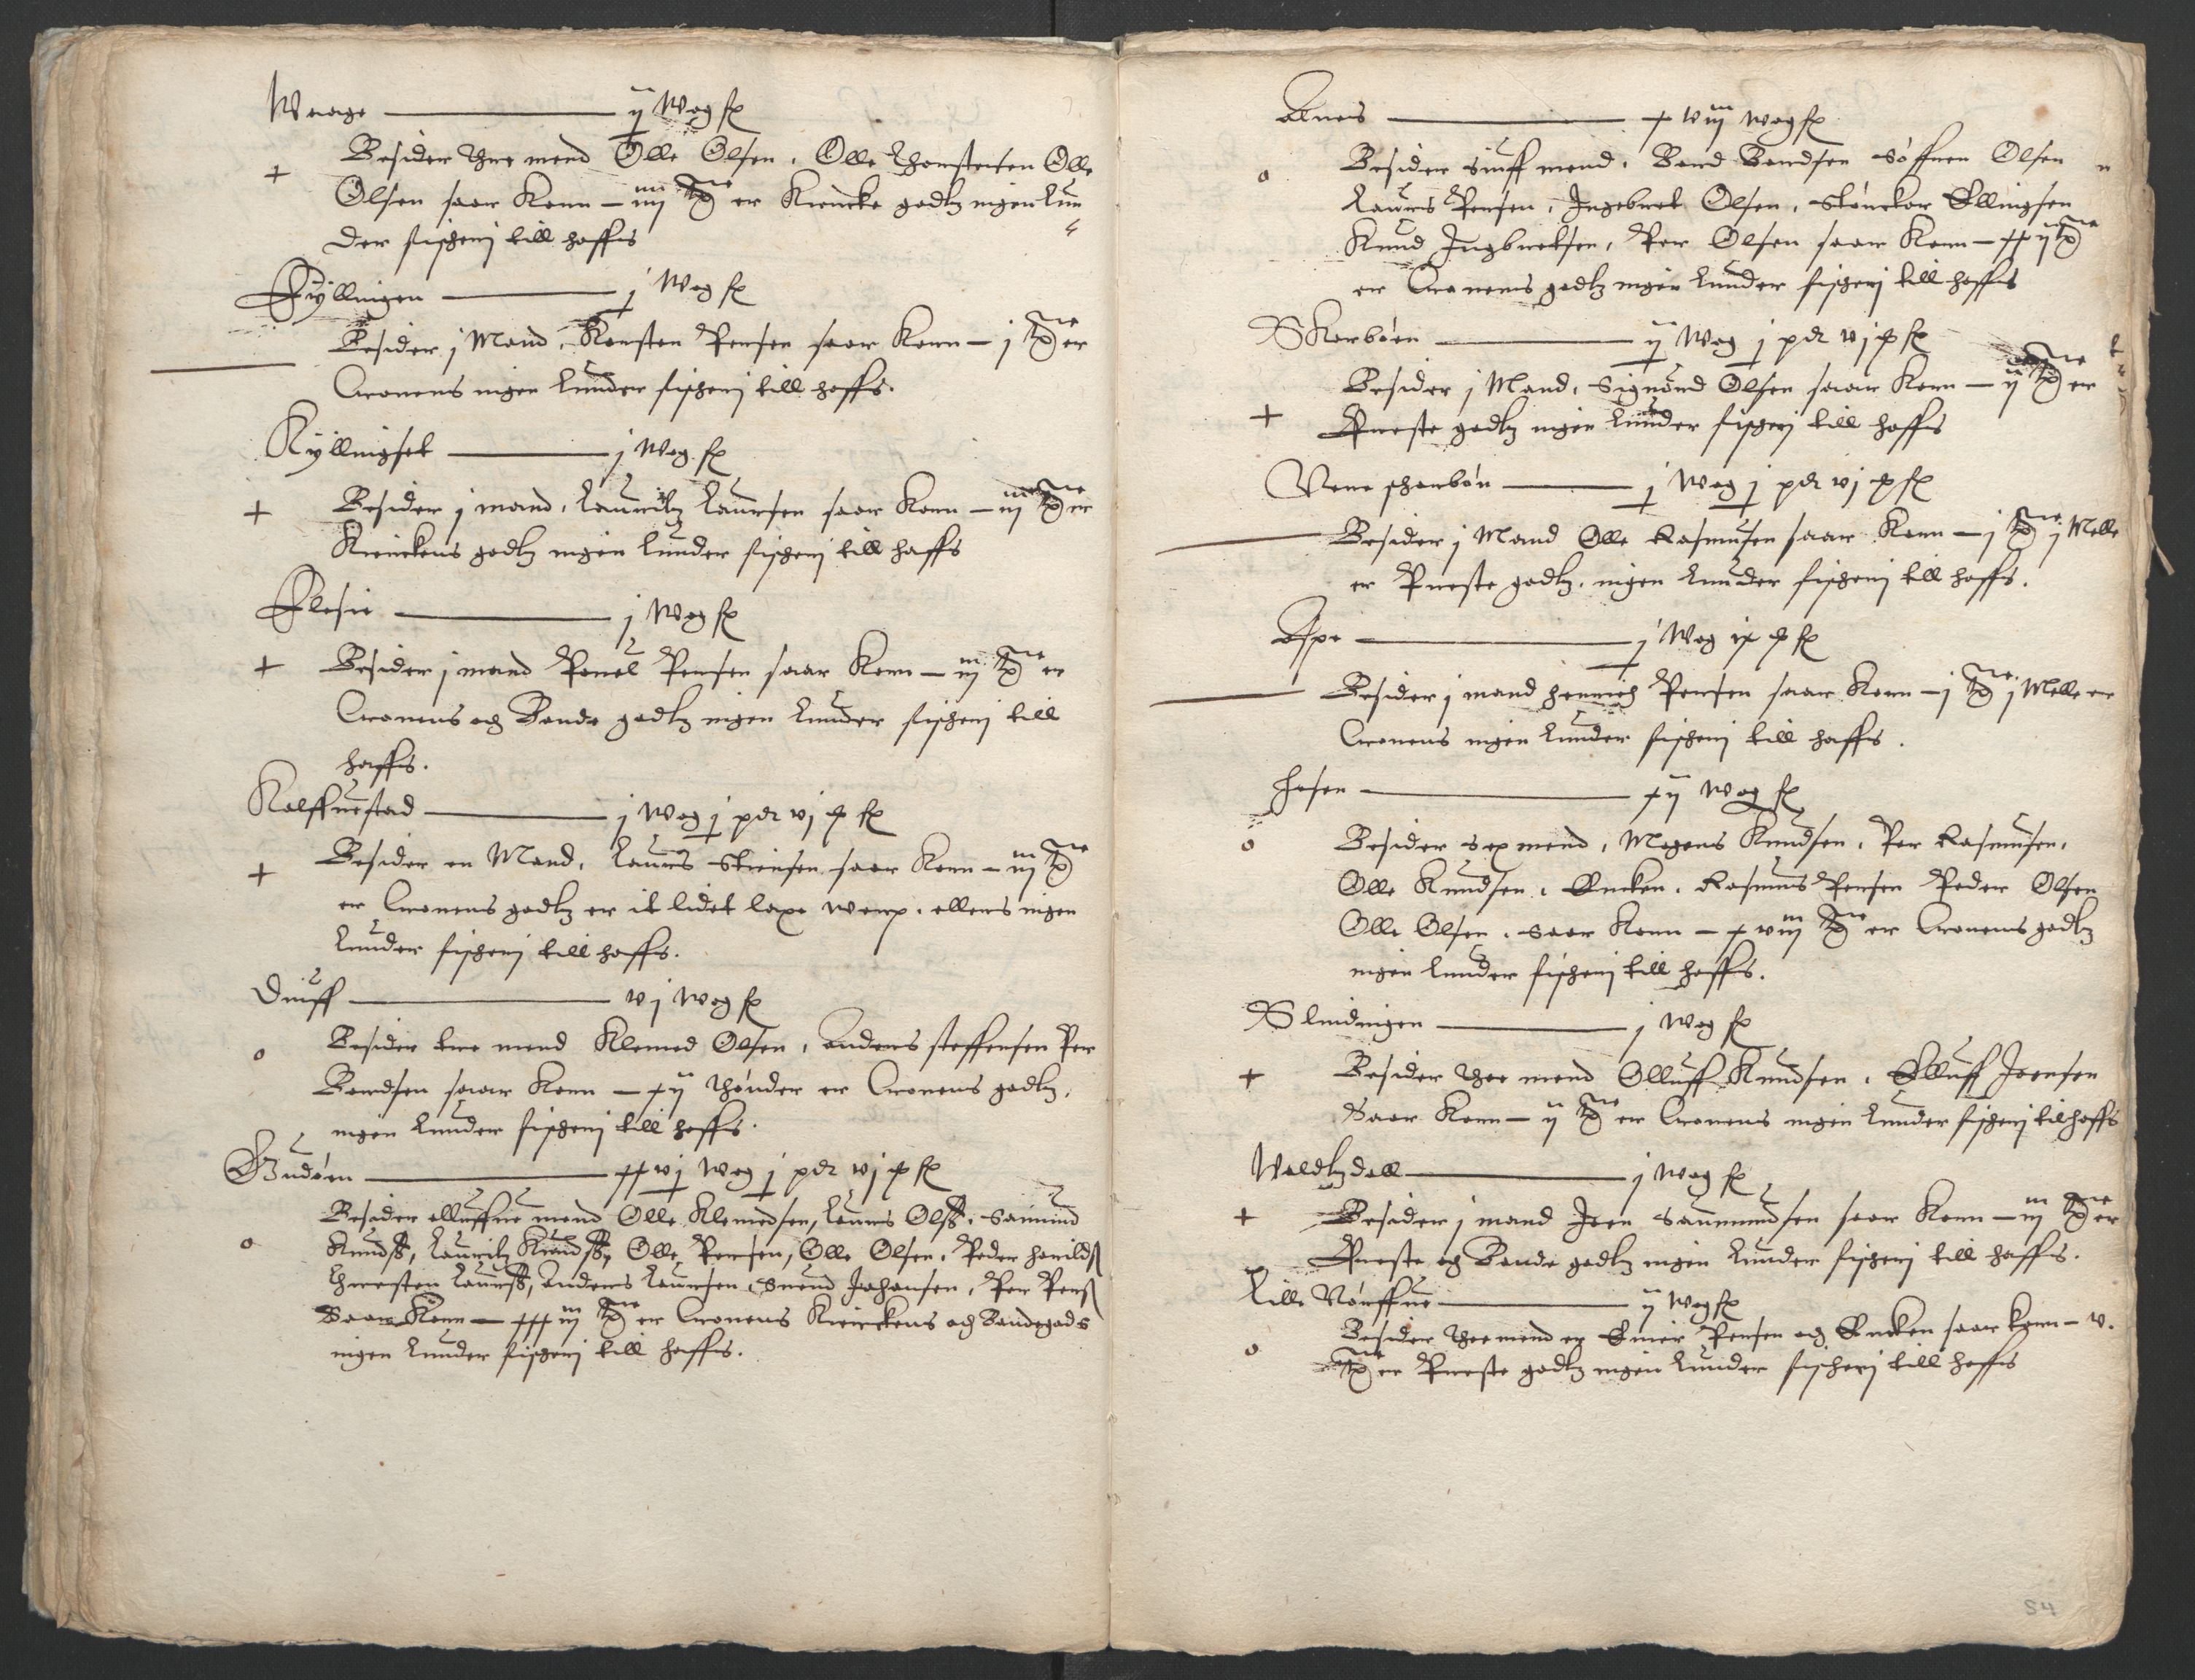 Waage ——— ij Wog f
+ Besider thre mend Olle Olsen, Olle Thorstensen Olle
Olsen saar Korn – iiij tr er Kircke godtz ingen lun
der fischerj till haffs
Fyllingen ——— j Wog f
Besider j Mand, Karsten Persen saar Korn – j tr er
Cronens ingen lunder fischerj till haffs.
Kyllingset ——— j Wog f
+ Besider j mand, Lauritz Laursen saar Korn – iij tr er
Kirckens godtz ingen lunder fischerj till haffs
Flesie ——— j Wog f
+ Besider j mand Pouel Persen saar Korn – iij tr er
Cronens og Bonde godtz ingen lunder fischerj till
haffs.
Kalffuestad ——— j Wog j pd vj f
+ Besider en Mand, Laurs Stensen saar Korn – iij tr
er Cronens godtz er it lidet laxe warp, ellers ingen
lunder fischerj till haffs.
Diuff ——— vj Wog f
o Besider tre mend Klemed Olsen, Anders Steffensen Per
Bendsen saar Korn – xij thønder er Cronens godtz,
ingen lunder fischerj till haffs.
Gudøen ——— xxvj Wog j pd vj f
Besider elluffue mend Olle Klemedsen, Laurs Olss, Saimund
o Knudss, Lauritz Knudss, Olle Persen, Olle Olsen, Peder
Chresten Laurss, Anders Laursen, Suend Johansen, Per Perss
Saar Korn – xxxiij tr er Cronens Kirckens og Bondegods
ingen lunder fischerj till haffs.
Alnes ——— xviij Wog f
o Besider siuff mend, Bend Bendsen Søffren Olsen
Laurs Persen, Ingebret Olsen, Ellingsen
Knud Ingbretsen, Per Olsen saar Korn – xxij tr
er Cronens godtz ingen lunder fischerj till haffs
Skorbøen ——— ij Wog j pd vj f
Besider j Mand, Sigmond Olsen saar Korn – ij tr er
+ Preste godtz ingen lunder fischerj till haffs
schorbøn ——— j Wog j pd vj f
Besider j Mand Olle Rasmusen saar Korn – j tr j Melle
er Preste godtz, ingen lunder fischerj till haffs.
Aspe ——— j Wog ix f
Besider j mand Henrich Persen saar Korn – j tr j Melle er
Cronens ingen lunder fischerj till haffs.
Hosen ——— xij Wog f
o Besider sex mend, Mogens Knudsen, Per Rasmusen,
Olle Knudsen, Encken, Rasmus Persen Peder Olsen
Olle Olsen, saar Korn – xviij tr er Cronens godtz
ingen lunder fischerj till haffs.
Slindingen ——— j Wog f
+ Besider thoe mend Olluff Knudsen, Elluff Joensen
Saar Korn – ij tr er Cronens ingen lunder fischerj til haffs
Waldtzdall ——— j Wog f
+ Besider j mand Joen Saumundsen saar Korn – iij tr er
Preste og Bonde godtz ingen lunder fischerj till haffs.
Lille Nørffue ——— ij Wog f
o Besider thoe mend er Persen og Encken saar korn – v.
tr er Preste godtz ingen lunder fischerj till haffs
54